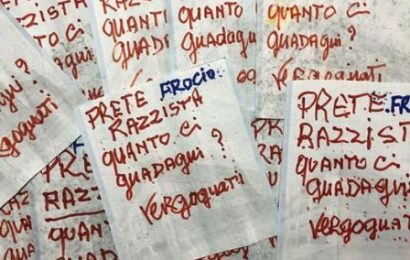 RAZZI
QUANTI
GUADI
QUANTO
GUADAGNI
?
QUANTO CI
GUADAGNI ?
Vergognati
Vergognati
PRETE FROCIO
RAZZISTA
QUANTO CI
GUADAGNI ?
Vergognati
PRETE FR
RAZZISTA
QUANTO CI
GUADAGNI
Vergognati
PRETE
RAZZIS
QUANT